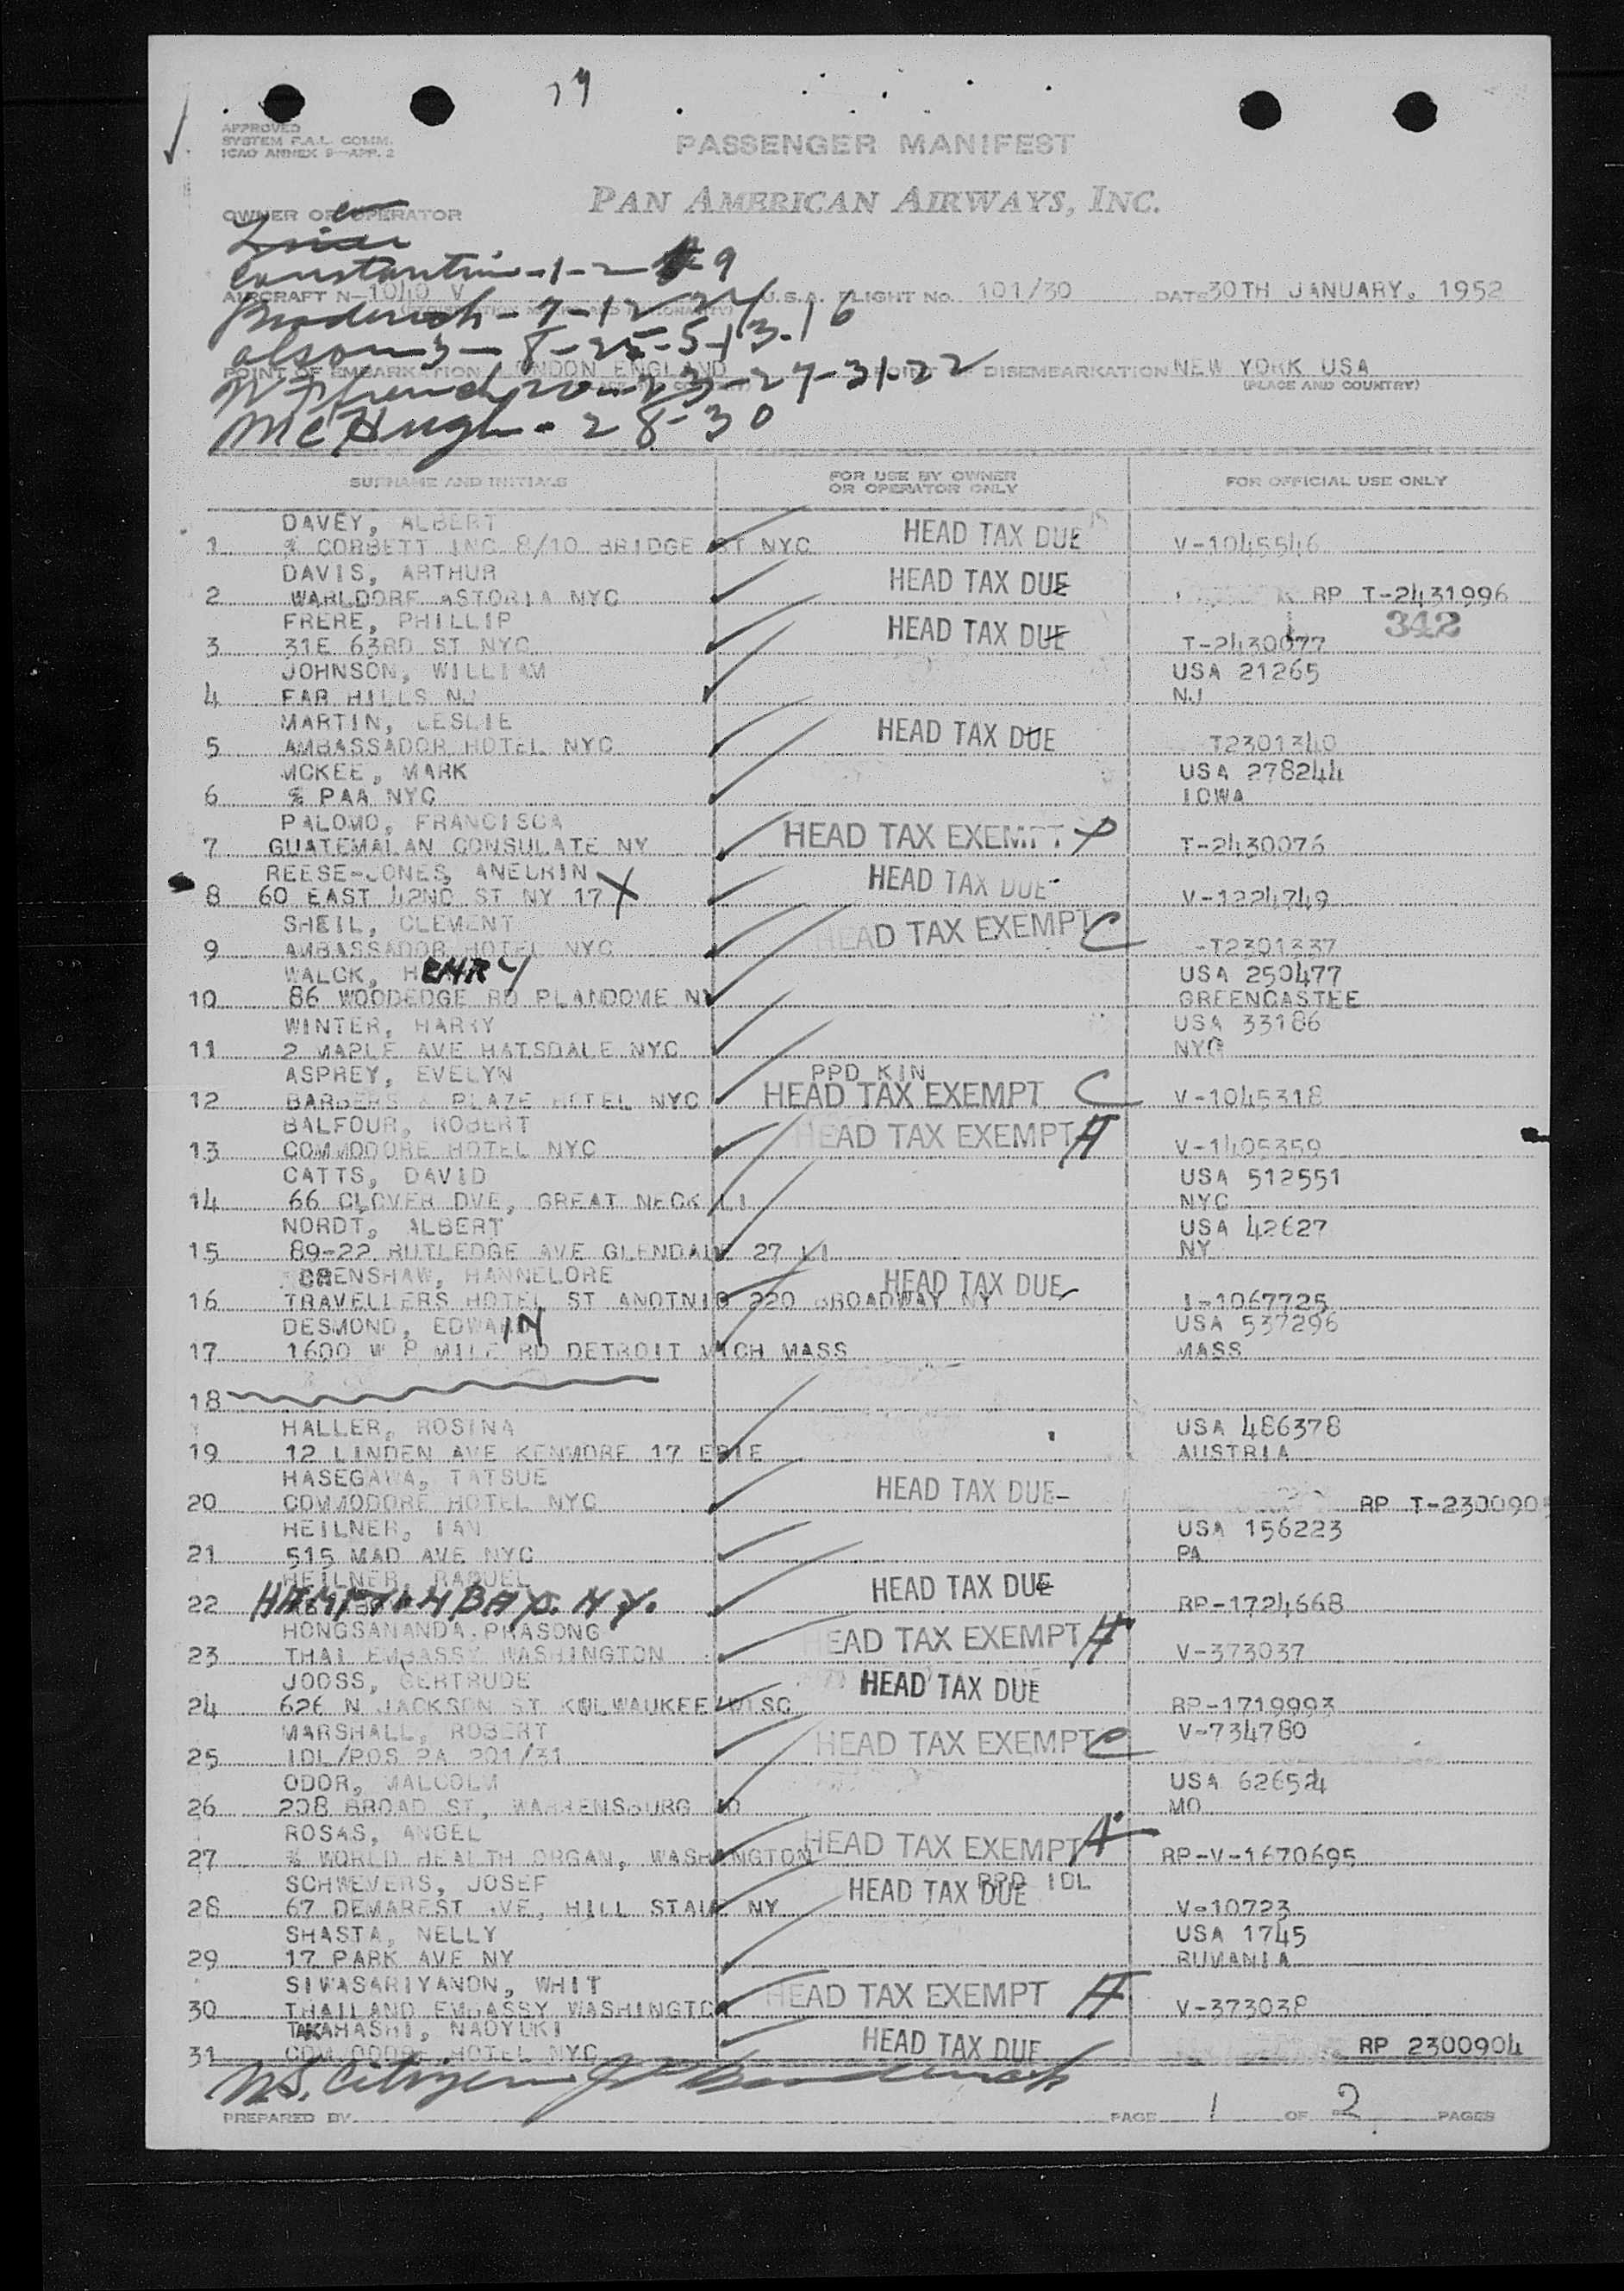 19
APPROVED
SYSTEM F.A.L. COMM.
ICAO ANNEX 9-APP. 2
PASSENGER MANIFEST
PAN AMERICAN AIRWAYS, INC.
OWNER OR OPERATOR
Constantin - 1 - 2 - 9
AIRCRAFT N-1040 V U.S.A. FLIGHT No. 101/30 DATE 30TH JANUARY, 1952
Broderick - 7 - 12 24
olson - 3 - 8 - 25 - 5 - 13 - 16
POINT OF EMBARKATION LONDON ENGLAND POINT OF DISEMBARKATION NEW YORK USA
(PLACE AND COUNTRY)
20 - 23 - 27 - 31 - 22
McHugh - 28 - 30
SURNAME AND INITIALS FOR USE BY OWNER OR OPERATOR ONLY FOR OFFICIAL USE ONLY
DAVEY, ALBERT HEAD TAX DUE
1 % CORBETT INC 8/10 BRIDGE ST NYC V-1045546
DAVIS, ARTHUR HEAD TAX DUE
2 WARLDORF ASTORIA NYC RP T-2431996
FRERE, PHILLIP HEAD TAX DUE 342
3 31E 63RD ST NYC T-2430077
JOHNSON, WILLIAM USA 21265
4 FAR HILLS NJ NJ
MARTIN, LESLIE HEAD TAX DUE
5 AMBASSADOR HOTEL NYC T2301340
MCKEE, MARK USA 278244
6 % PAA NYC IOWA
PALOMO, FRANCISCA HEAD TAX EXEMPT P
7 GUATEMALAN CONSULATE NY T-2430076
REESE-JONES, ANEURIN HEAD TAX DUE
8 60 EAST 42ND ST NY 17 X V-1224749
SHEIL, CLEMENT HEAD TAX EXEMPT C
9 AMBASSADOR HOTEL NYC -T2301337
WALCK, HENRY USA 250477
10 86 WOODEDGE RD PLANDOME NY GREENCASTEE
WINTER, HARRY USA 33186
11 2 MAPLE AVE HATSDALE NYC NYC
ASPREY, EVELYN PPD KIN
12 BARBERS & PLAZE HOTEL NYC HEAD TAX EXEMPT C V-1045318
BALFOUR, ROBERT HEAD TAX EXEMPT A
13 COMMODORE HOTEL NYC V-1405359
CATTS, DAVID USA 512551
14 66 CLOVER DVE, GREAT NECK LI NYC
NORDT, ALBERT USA 42627
15 89-22 RUTLEDGE AVE GLENDALE 27 LI NY
CRENSHAW, HANNELORE HEAD TAX DUE
16 TRAVELLERS HOTEL ST ANOTNIO 220 BROADWAY NY I-1067725
DESMOND, EDWARD IN USA 537296
17 1600 W 8 MILE RD DETROIT MICH MASS MASS
18
HALLER, ROSINA USA 486378
19 12 LINDEN AVE KENMORE 17 ERIE AUSTRIA
HASEGAWA, TATSUE HEAD TAX DUE
20 COMMODORE HOTEL NYC RP T-2300905
HEILNER, IAN USA 156223
21 515 MAD AVE NYC PA
HEILNER, RAQUEL HEAD TAX DUE
22 HAMPTON BAYS. N.Y. RP-1724668
HONGSANANDA, PRASONG HEAD TAX EXEMPT A
23 THAI EMBASSY WASHINGTON V-373037
JOOSS, GERTRUDE HEAD TAX DUE
24 626 N JACKSON ST KULWAUKEE WISC RP-1719993
MARSHALL, ROBERT HEAD TAX EXEMPT C V-734780
25 IDL/POS PA 201/31
ODOR, MALCOLM USA 62654
26 208 BROAD ST, WARRENSBURG MO MO
ROSAS, ANGEL HEAD TAX EXEMPT A
27 % WORLD HEALTH ORGAN, WASHINGTON RP-V-1670695
SCHWEVERS, JOSEF HEAD TAX DUE PPD IDL
28 67 DEMAREST AVE, HILL STAIE NY V-10723
SHASTA, NELLY USA 1745
29 17 PARK AVE NY RUMANIA
SIWASARIYANON, WHIT HEAD TAX EXEMPT A
30 THAILAND EMBASSY WASHINGTON V-373038
TAKAHASHI, NAOYUKI HEAD TAX DUE
31 COMMODORE HOTEL NYC RP 2300904
U.S. Citizens J Broderick
PREPARED BY PAGE 1 OF 2 PAGES